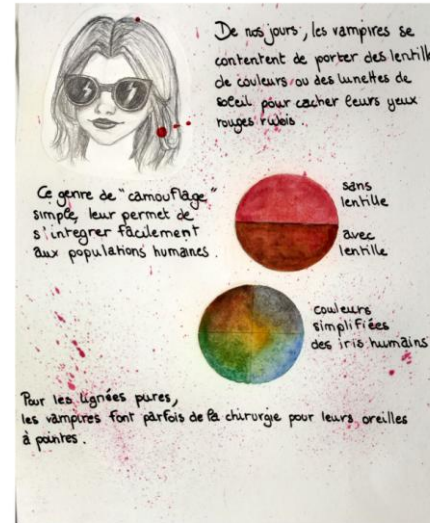 De nos jours, les vampires se
contentent de porter des lentill
de couleurs ou des lunettes de
soleil pour cacher leurs yeux
rouges rubis.
Ce genre de "camouflage"
simple, leur permet de
s'integrer facilement
aux populations humaines.
sans
lentille
avec
lentille
couleurs
simplifiées
des iris humains
Pour les lignées pures,
les vampires font parfois de la chirurgie pour leurs oreilles
à pointes.